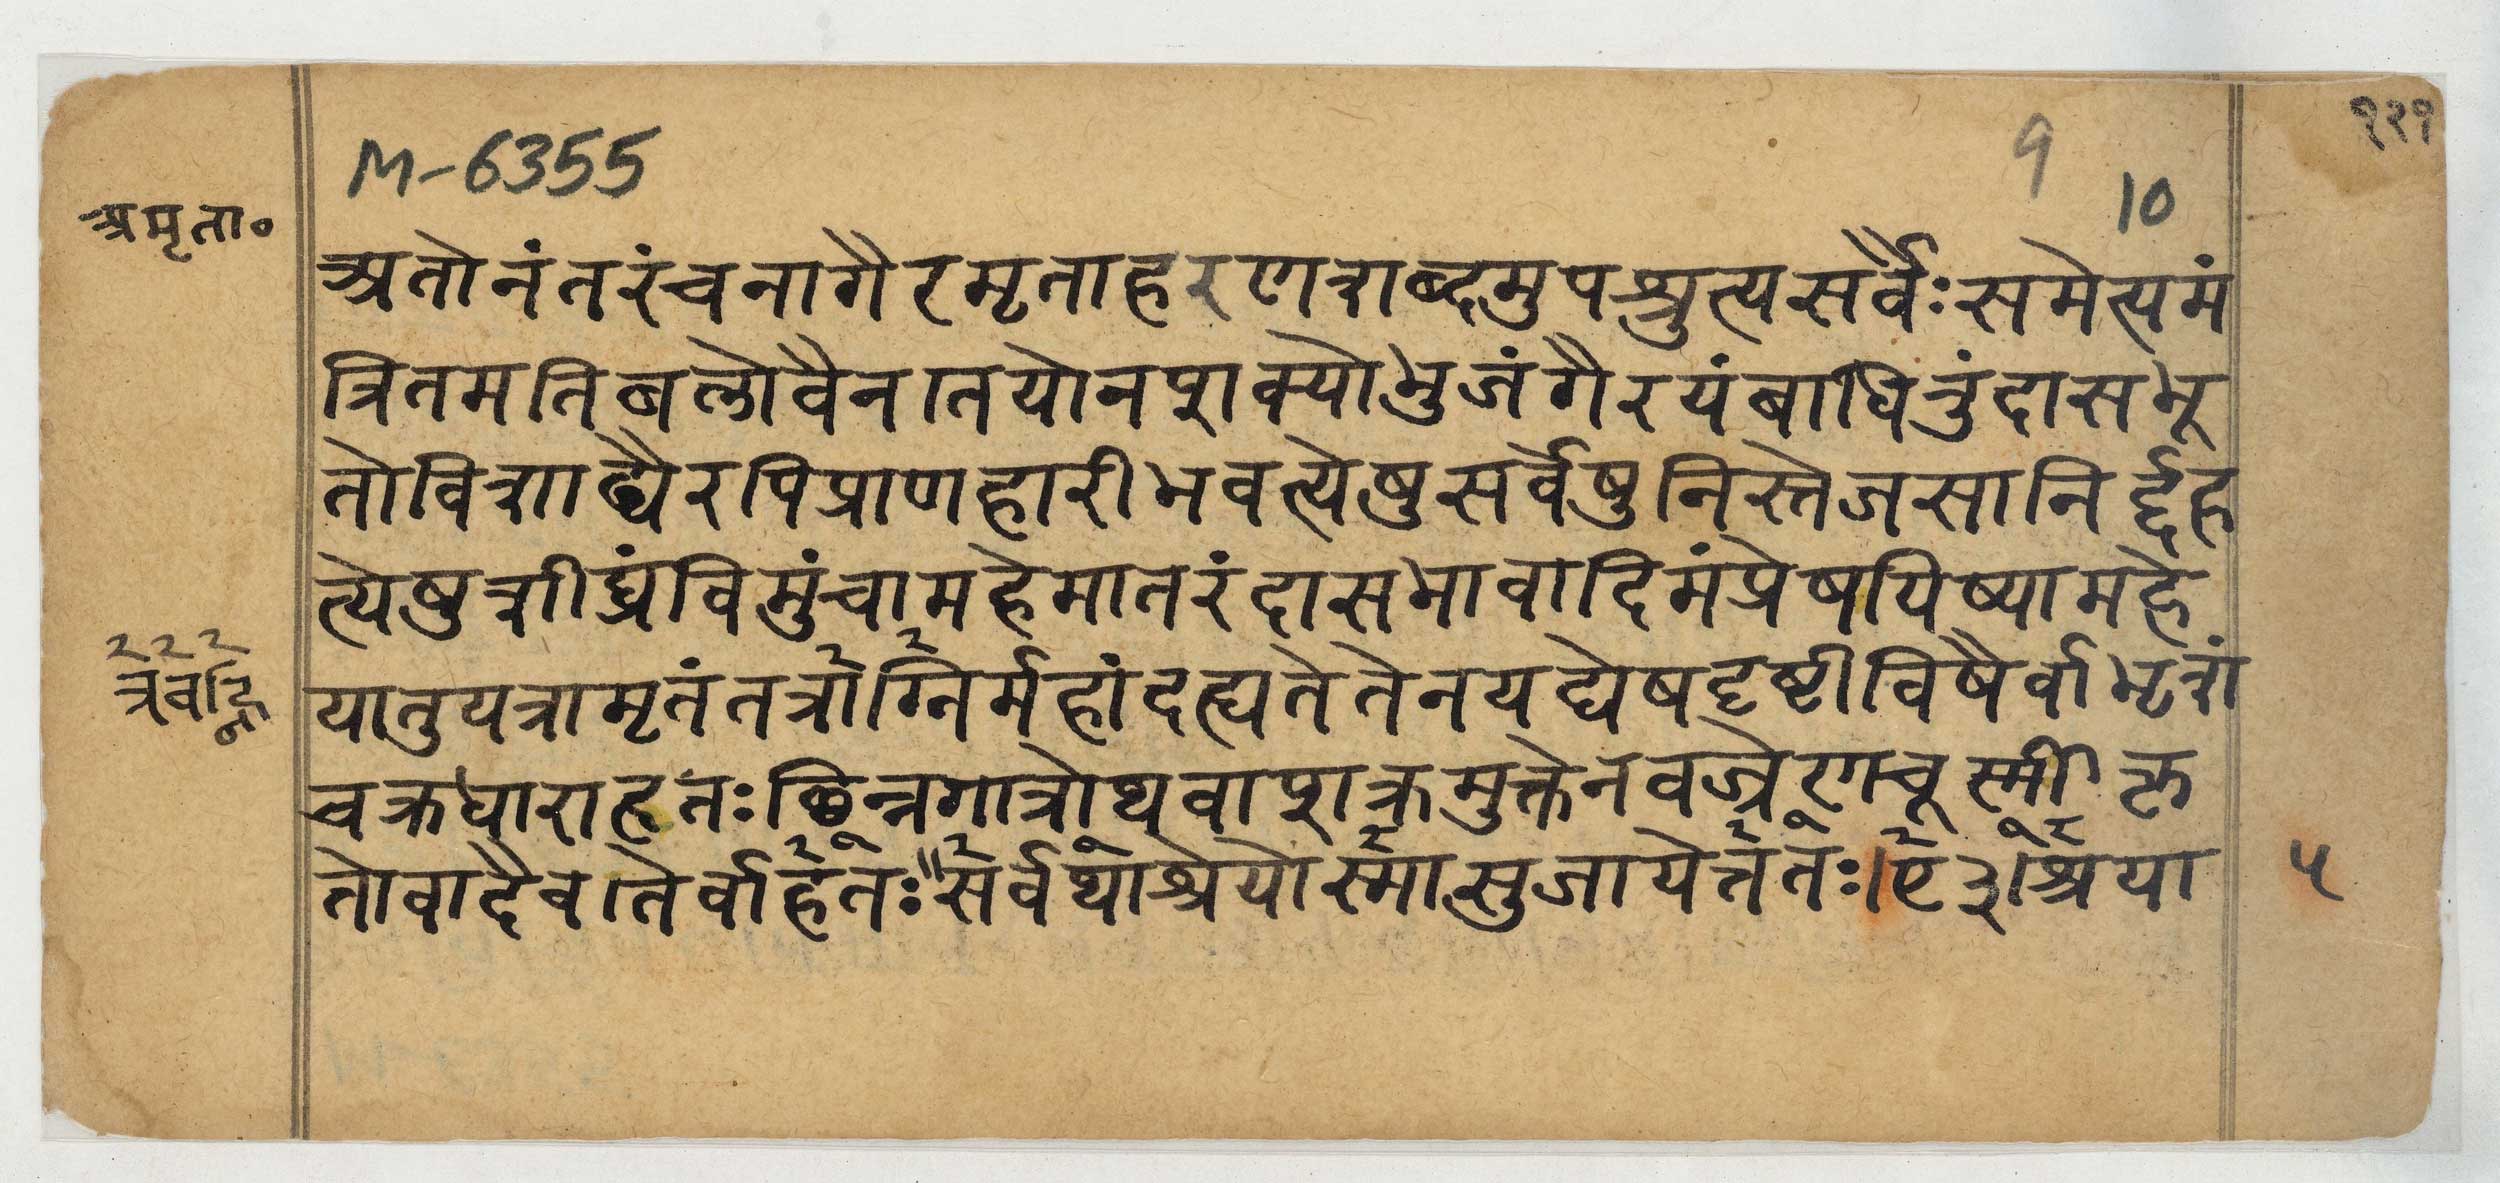 १२१
M-6355
9
10
अमृता०
अतोनंतरंचनागैरमृताहरणशब्दमुपश्रुत्यसर्वैःसमेत्यमं
त्रितमतिबलोवैनातयोनशक्योभुजंगैरयंबाधितुंदासभू
तोविशाद्यैरपिप्राणहारीभवत्येषुसर्वेषुनिस्तेजसानिर्द्दह
त्येषुशीघ्रंविमुंचामहेमातरंदासभावादिमंप्रेषयिष्यामहे
यातुयत्रामृतंतत्रोग्निर्महांदह्यतेतेनयद्येषदृष्टीविषैर्वाभृशं
चक्रधाराहतःछिन्नगात्रोथवाशक्रमुक्तेनवज्रेणचूर्स्मीकृ
तोवादैवतैर्वाहतःसर्वथाश्रेयोस्मासुजायेत्ततः।ए३।श्रया
२२२
५